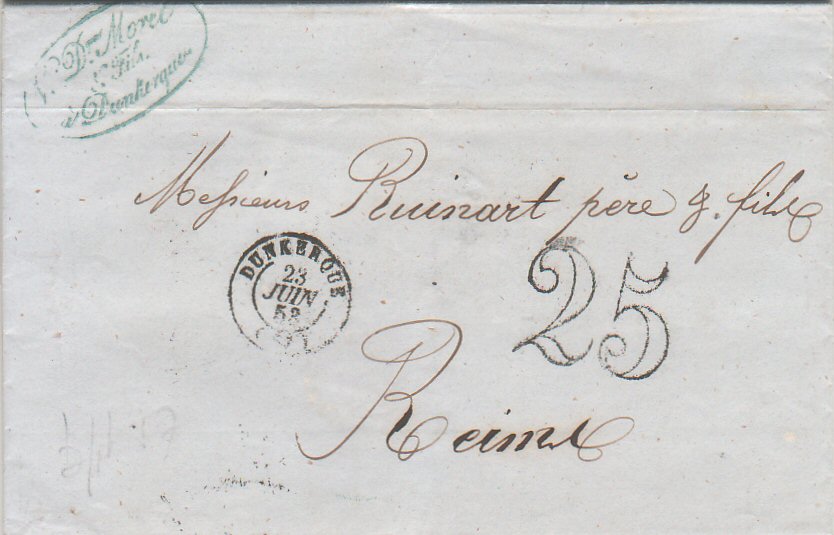 Dr Morel
& Fils
à Dunkerque
Messieurs Ruinart père & fils
DUNKERQUE
23
JUIN
53
25
Reims